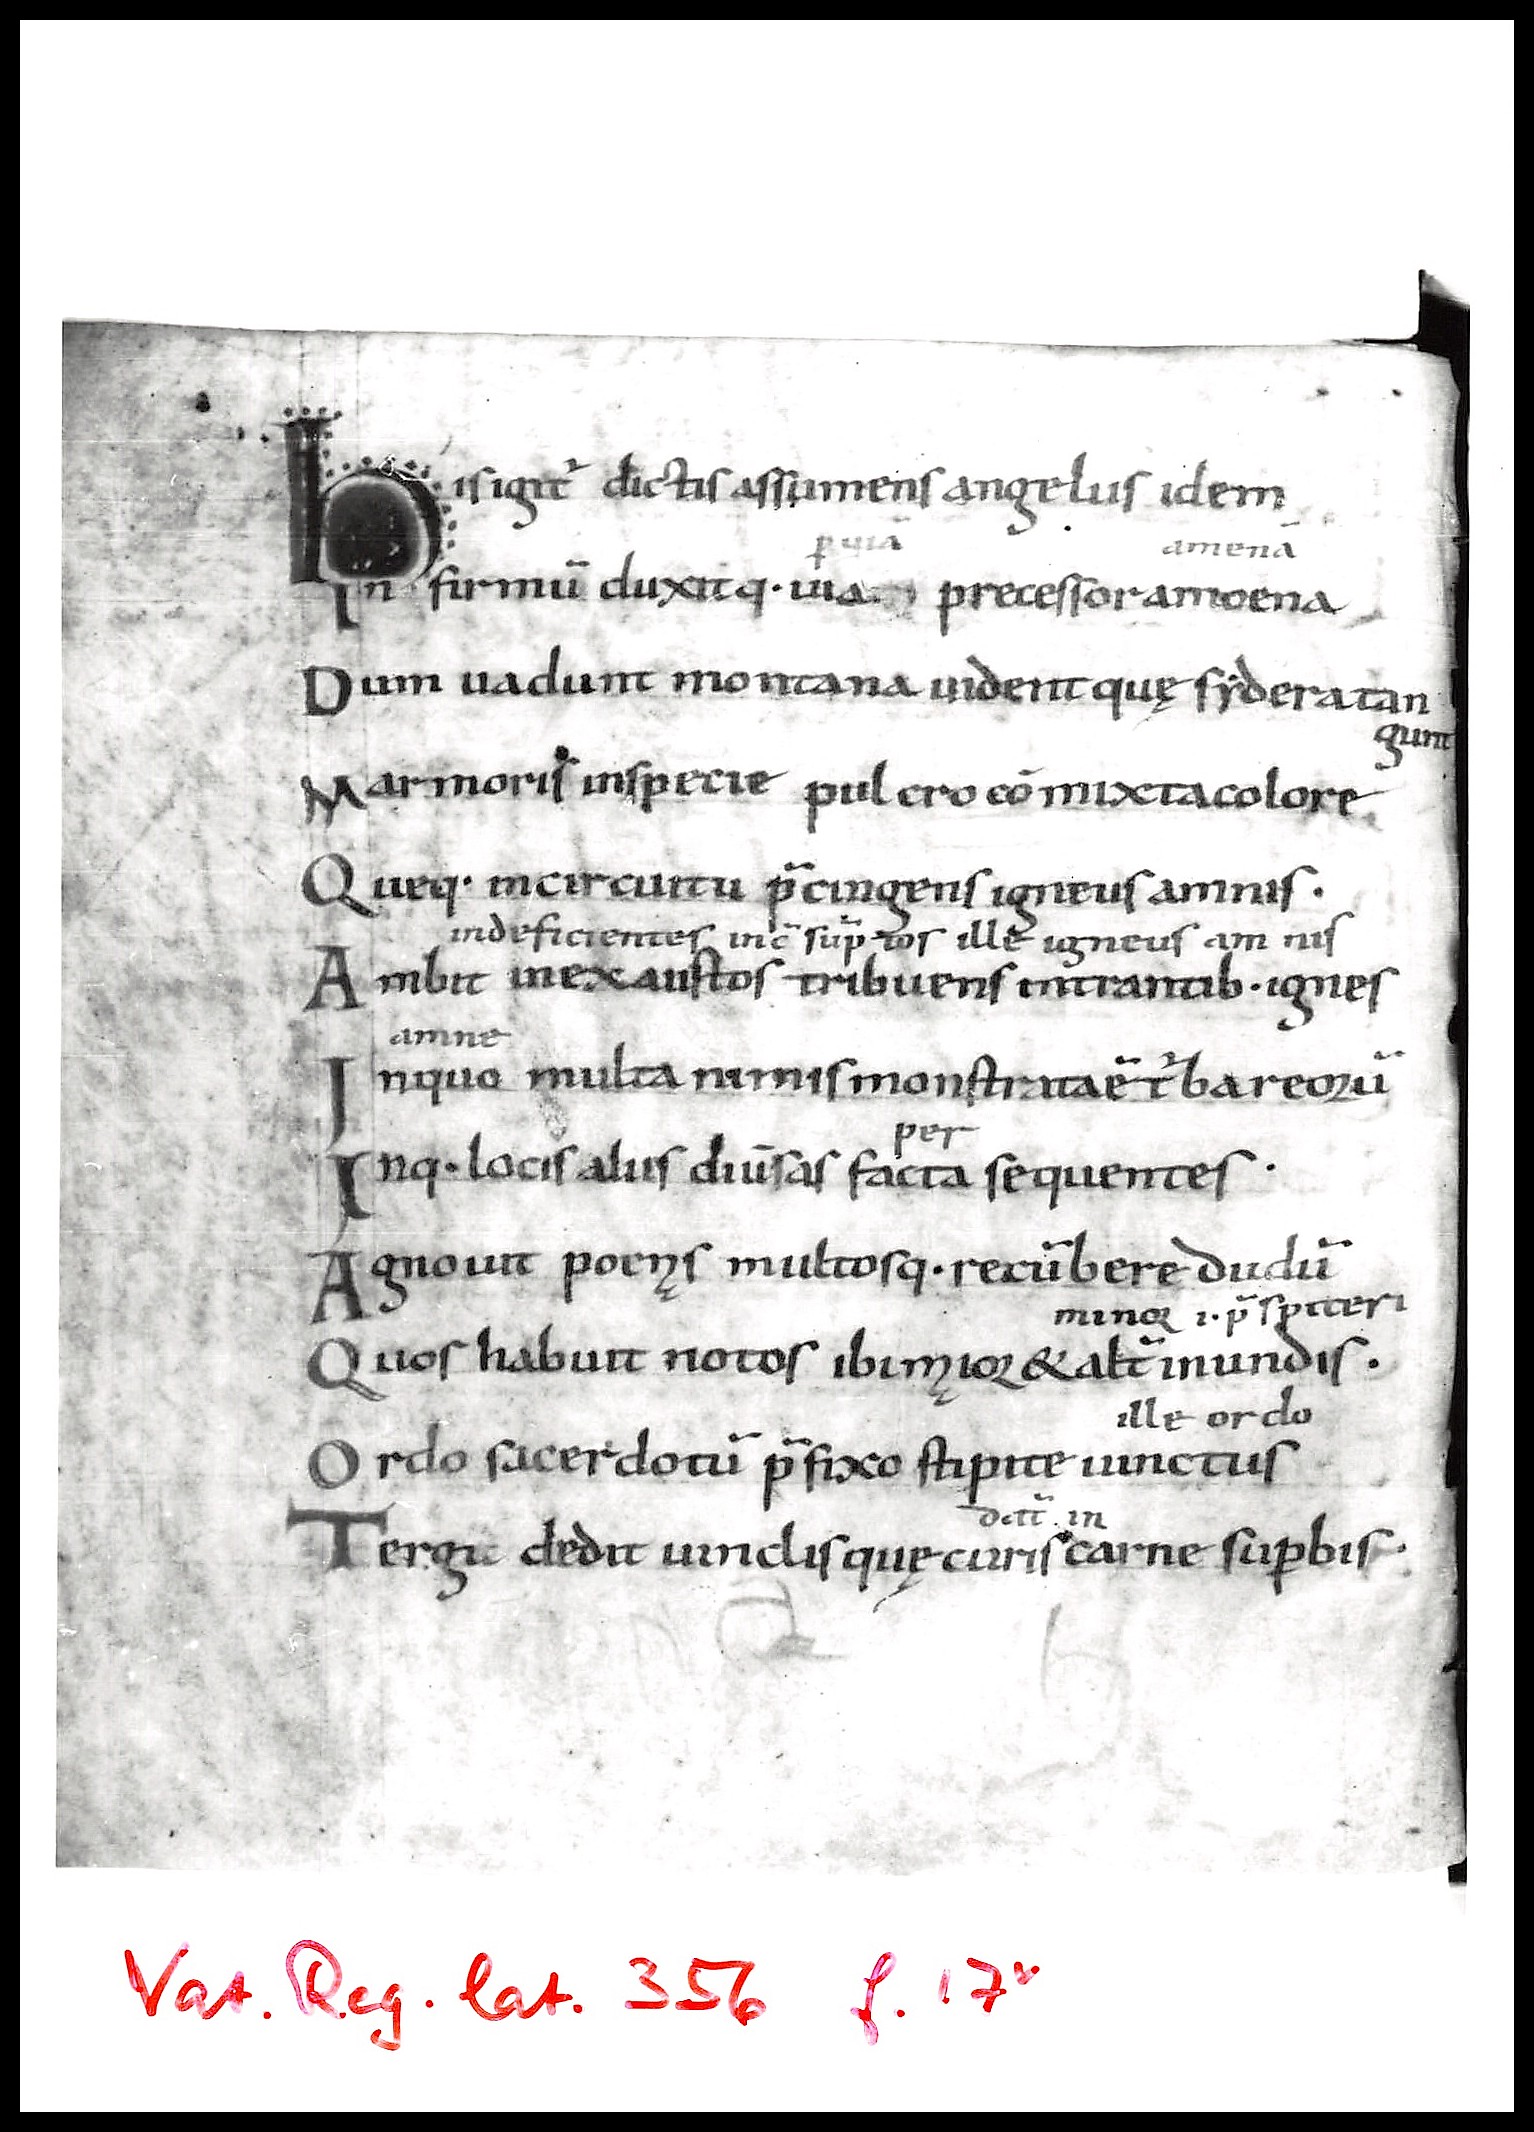 his igit᷑ dictis assumens angelus idem
ꝑ uiā amenā
In firmū duxitq· uia precessor amoena
Dum uadunt montana uident quę syderatan
gunt
Marmoris in specie pulcro cōmixta colore
Queq· in circuitu p̄cingens igneus amnis·
indeficientes inc̄ sup̄ tos ille igneus am nis
Ambit inexaustos tribuens intrantib· ignes
amne
In quo multa nimis monstrata ē t᷑ba reoꝝū
per
Inq· locis aliis diūsas facta sequentes·
Agnouit poenįs multosq· recūbere dudū
minoꝝ i· p̄sƀiteri
Quos habuit notos ibi mąioꝝ & alt̄ in undis·
ille ordo
Ordo sacerdotū p̄fixo stipite uinctus
dat̄ in
Tergu dedit uinclis quę curis carne suꝑbis·
Vat. Reg. lat. 356 f. 17v